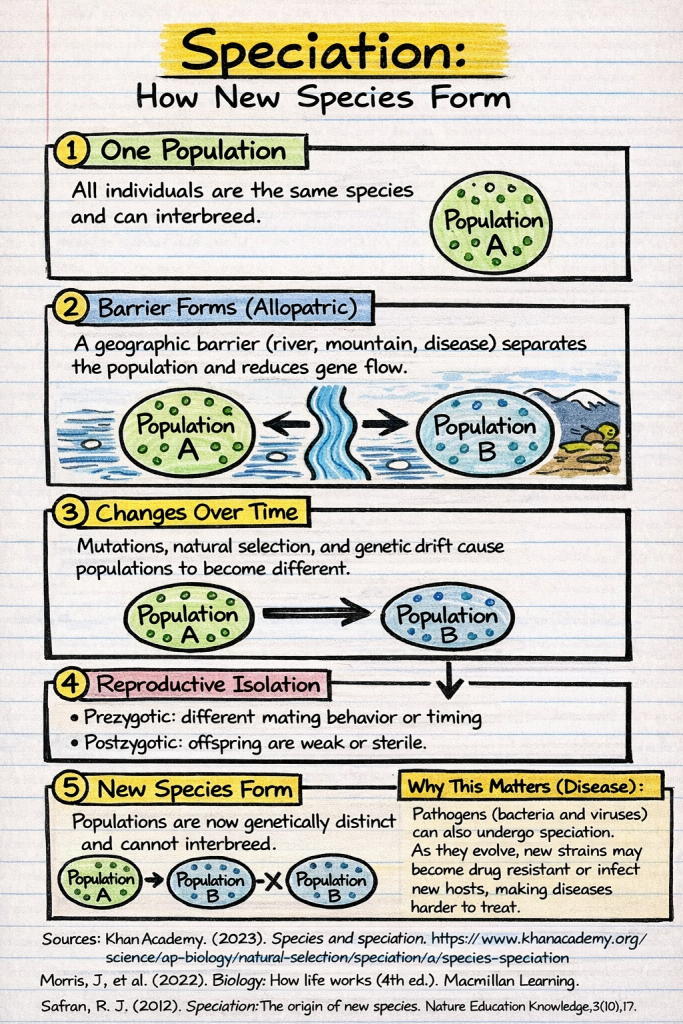 Speciation:
How New Species Form
1 One Population
All individuals are the same species
and can interbreed.
Population
A
2 Barrier Forms (Allopatric)
A geographic barrier (river, mountain, disease) separates
the population and reduces gene flow.
Population
A
Population
B
3 Changes Over Time
Mutations, natural selection, and genetic drift cause
populations to become different.
Population
A
Population
B
4 Reproductive Isolation
• Prezygotic: different mating behavior or timing
• Postzygotic: offspring are weak or sterile.
5 New Species Form
Populations are now genetically distinct
and cannot interbreed.
Population
A
Population
B
X
Population
B
Why This Matters (Disease):
Pathogens (bacteria and viruses)
can also undergo speciation.
As they evolve, new strains may
become drug resistant or infect
new hosts, making diseases
harder to treat.
Sources: Khan Academy. (2023). Species and speciation. https://www.khanacademy.org/
science/ap-biology/natural-selection/speciation/a/species-speciation
Morris, J, et al. (2022). Biology: How life works (4th ed.). Macmillan Learning.
Safran, R. J. (2012). Speciation: The origin of new species. Nature Education Knowledge, 3(10), 17.